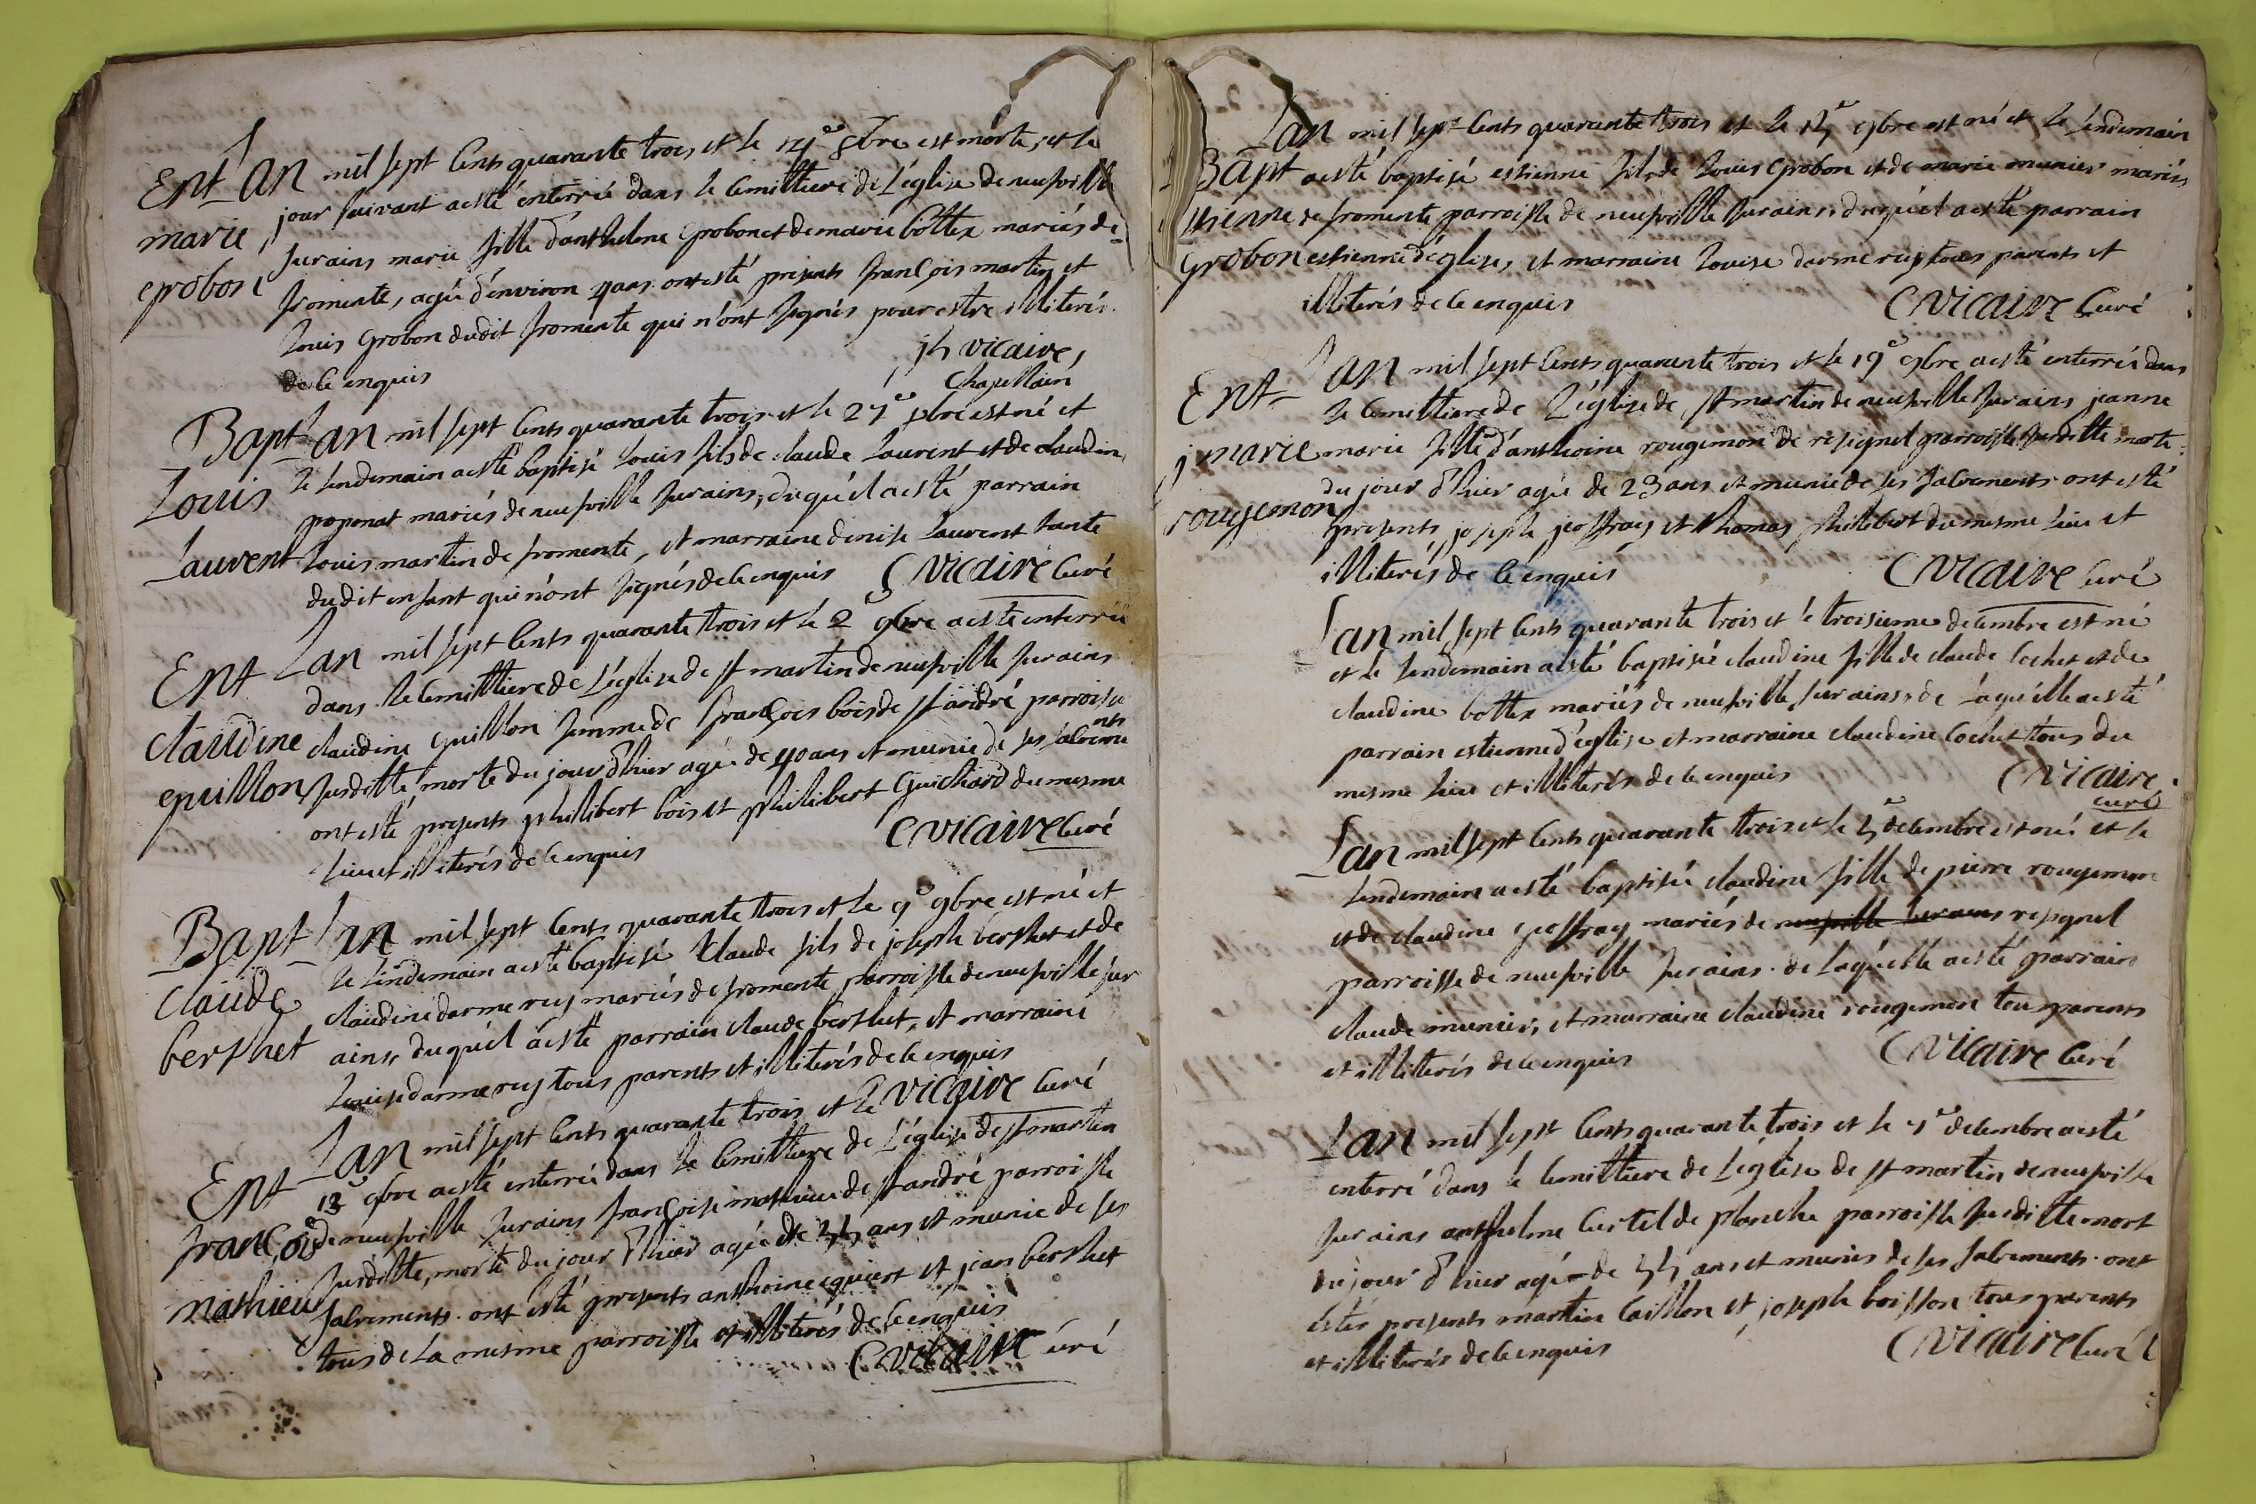 Ent Lan mil sept Cents quarante trois et le 14e 8bre est morte, et le
marie grobon
jour suivant a esté enterrée dans le Cemittiere de L'église de neufville
surains marie fille d'anthelme Grobon et de marie bottex mariés de
fromente, agée d'environ 4 ans. ont esté presents françois martin et
Louis Grobon dudit fromente qui n'ont signés pour estre illiterés
de ce enquis
jh vicaire,
chapellain
Bapt Lan mil sept Cents quarante trois et le 27e 8bre est né et
Louis Laurent
le lendemain a esté baptisé Louis fils de claude Laurent et de claudine
poponat mariés de neufville surains, duquél a esté parrain
Louis martin de fromente, et marraine denise Laurent tante
dudit enfant qui n'ont signés de ce enquis C vicaire Curé
Ent Lan mil sept Cents quarante trois et le 2e 9bre a esté enterrée
claudine guillon
dans le Cemittiere de L'église de st martin de neufville surains
claudine Guillon femme de françois bois de st andré parroisse
susditte, morte du jour d'hier agée de 40 ans et munie de ses sacrements
ont esté presents philibert bois et philibert Guichard du mesme
lieu et illiterés de ce enquis
C vicaire Curé
Bapt Lan mil sept Cents quarante trois et le 9e 9bre est né et
claude berthet
le lendemain a esté baptisé Claude fils de joseph berthet et de
claudine darmerey mariés de fromente parroisse de neufville sur
ains, duquél a esté parrain claude berthet, et marraine
Louise darmerey tous parents et illiterés de ce enquis
C vicaire Curé
Ent Lan mil sept Cents quarante trois et le
françoise mathieu
13e 9bre a esté enterrée dans le Cemittiere de L'église de st martin
de neufville surains françoise mathieu de st andré parroisse
susditte, morte du jour d'hier agée de 55 ans et munie de ses
sacrements. ont esté presents anthoine et jean berthet
tous de la mesme parroisse et illiterés de ce enquis
C vicaire Curé
Lan mil sept Cents quarante trois et le 15e 9bre est né et le lendemain
Bapt a esté baptisé estienne fils de Louis Grobon et de marie munier mariés
Etienne de fromente parroisse de neufville surains, duquél a esté parrain
Grobon estienne d'église, et marraine Louise darmerey tous parents et
illiterés de ce enquis C vicaire Curé
Ent Lan mil sept Cents quarante trois et le 19e 9bre a esté enterrée dans
le Cemittiere de L'église de st martin de neufville surains jeanne
j marie marie fille d'anthoine rougemon de resignel parroisse susditte morte
rougemon
du jour d'hier agée de 23 ans et munie de ses sacrements ont esté
presents joseph jeoffray et thomas philibert du mesme lieu et
illiterés de ce enquis C vicaire Curé
Lan mil sept Cents quarante trois et le troisieme decembre est né
et le lendemain a esté baptisée claudine fille de claude Cochet et de
claudine bottex mariés de neufville surains, de laquélle a esté
parrain estienne d'église et marraine claudine Cochet tous du
mesme lieu et illiterés de ce enquis C vicaire
curé
Lan mil sept Cents quarante trois et le 5e decembre est née et le
lendemain a esté baptisée claudine fille de pierre rougemon
et de claudine jeoffray mariés de neufville surains resignel
parroisse de neufville surains. de laquélle a esté parrain
claude munier, et marraine claudine rougemon tous parents
et illiterés de ce enquis C vicaire Curé
Lan mil sept Cents quarante trois et le 7e decembre a esté
enterré dans le Cemittiere de L'église de st martin de neufville
surains anthelme Curtel de planche parroisse susditte mort
du jour d'hier agé de 55 ans et munis de ses sacrements. ont
estés presents martin Caillon et joseph boisson tous parents
et illiterés de ce enquis C vicaire Curé